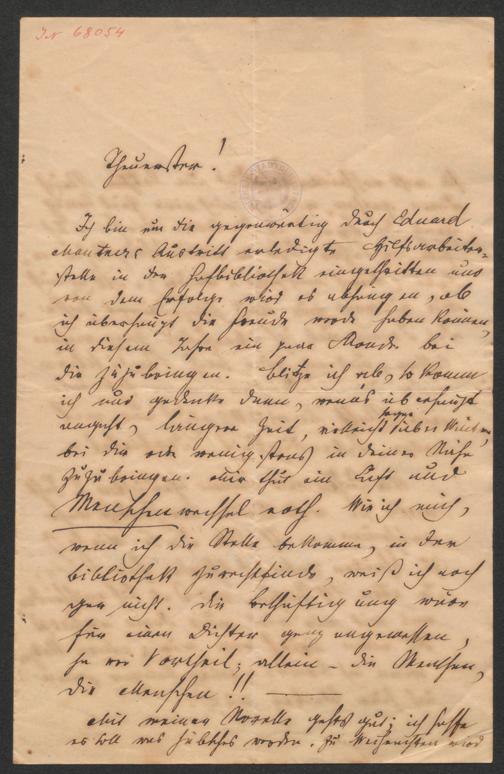 IN 68054
Theuerster!
Ich bin um die gegenwärtig durch Eduard
Mauthners Austritt erledigte Hilfsarbeiter-
stelle in der Hofbibliothek eingeschritten und
von dem Erfolge wird es abhängen, ob
ich überhaupt die Freude werde haben können,
in diesem Jahre ein paar Monde bei
Dir zuzubringen. Blitze ich ab, so komm
ich und gedenke dann, wenns überhaupt
angeht, längere Zeit, vielleicht sogar über Winter,
bei Dir oder wenigstens in Deiner Nähe
zuzubringen. Mir thut ein Luft und
Menschenwechsel noth. Wie ich mich,
wenn ich die Stelle bekomme, in der
Bibliothek zurechtfinde, weiß ich noch
gar nicht. Die Beschäftigung wäre
für einen Dichter ganz angemessen,
ja von Vortheil; allein – die Menschen,
die Menschen!! —
Mit meiner Novelle gehts gut; ich hoffe
es soll was Hübsches werden. Zu Weihnachten wird